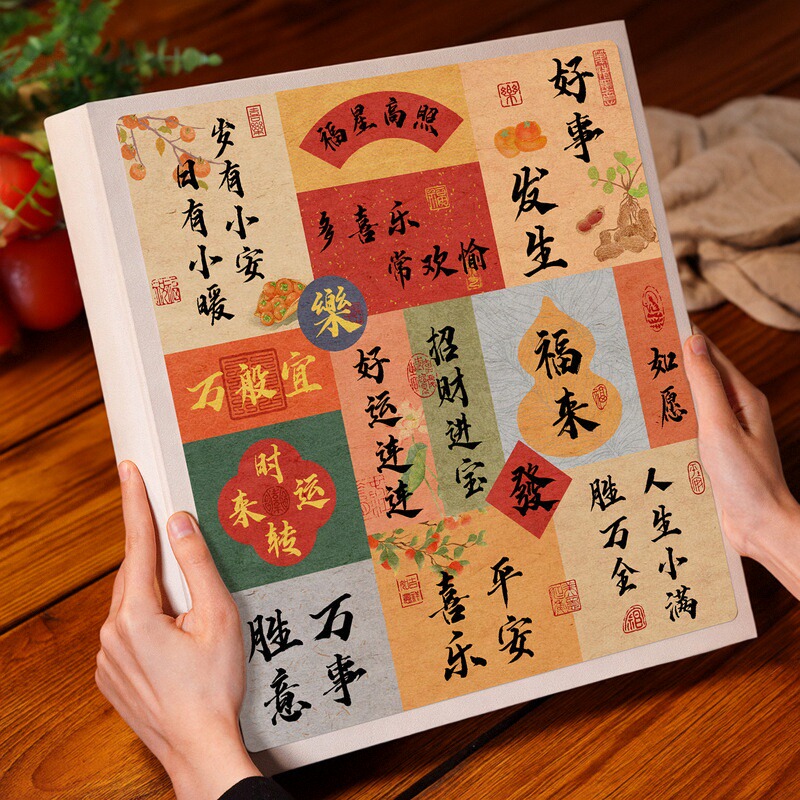 岁有小安
日有小暖
福星高照
多喜乐
常欢愉
好事
发生
樂
万般宜
好运连连
招财进宝
福来
如愿
时来运转
發
人生小满
胜万全
平安
喜乐
万事
胜意